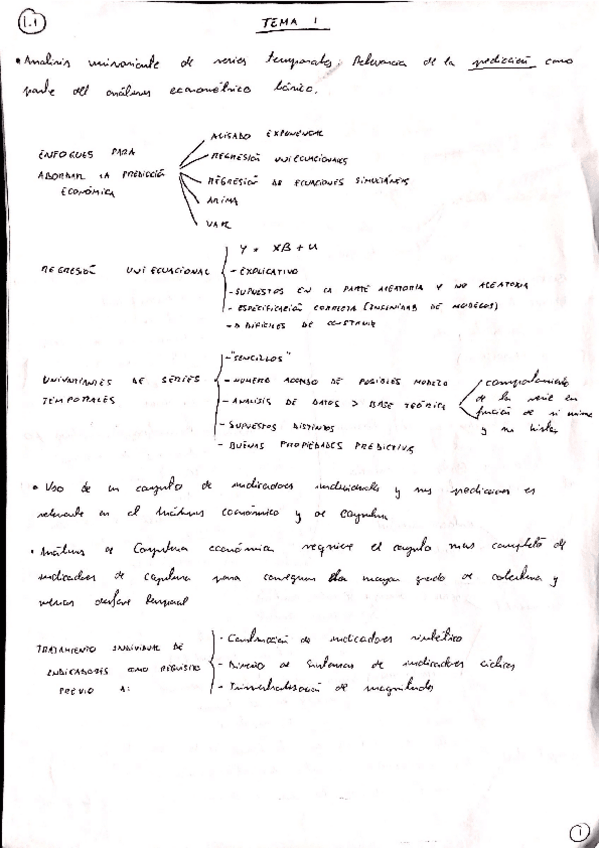 1.1
TEMA 1
• Analisis univariante de series temporales: Relevancia de la predicción como
parte del análisis econométrico básico.
ENFOQUES PARA
ABORDAR LA PREDICCIÓN
ECONÓMICA
ALISADO EXPONENCIAL
- REGRESIÓN UNIECUACIONALES
- REGRESIÓN DE ECUACIONES SIMULTÁNEAS
ARIMA
VAR
REGRESIÓN UNIECUACIONAL
Y = XB + U
- EXPLICATIVO
- SUPUESTOS EN LA PARTE ALEATORIA Y NO ALEATORIA
- ESPECIFICACIÓN CORRECTA (INFINIDAD DE MODELOS)
- DIFICILES DE CONSTRUIR
UNIVARIANTES DE SERIES
TEMPORALES
- "SENCILLOS"
- NUMERO ACOTADO DE POSIBLES MODELO
- ANALISIS DE DATOS > BASE TEÓRICA
- SUPUESTOS DISTINTOS
- BUENAS PROPIEDADES PREDICTIVAS
comportamiento
de la serie en
función de si misma
y su
• Uso de un conjunto de indicadores individuales y sus predicciones es
relevante en el análisis económico y de coyuntura
• Análisis de Coyuntura económica requiere el conjunto mas completo de
indicadores de coyuntura para conseguir mayor grado de cobertura y
menor desfase temporal
TRATAMIENTO INDIVIDUAL DE
INDICADORES COMO REQUISITO
PREVIO A:
- Construcción de indicadores sintético
- Diseño de sistemas de indicadores cíclicos
- Trimestralización de magnitudes
1